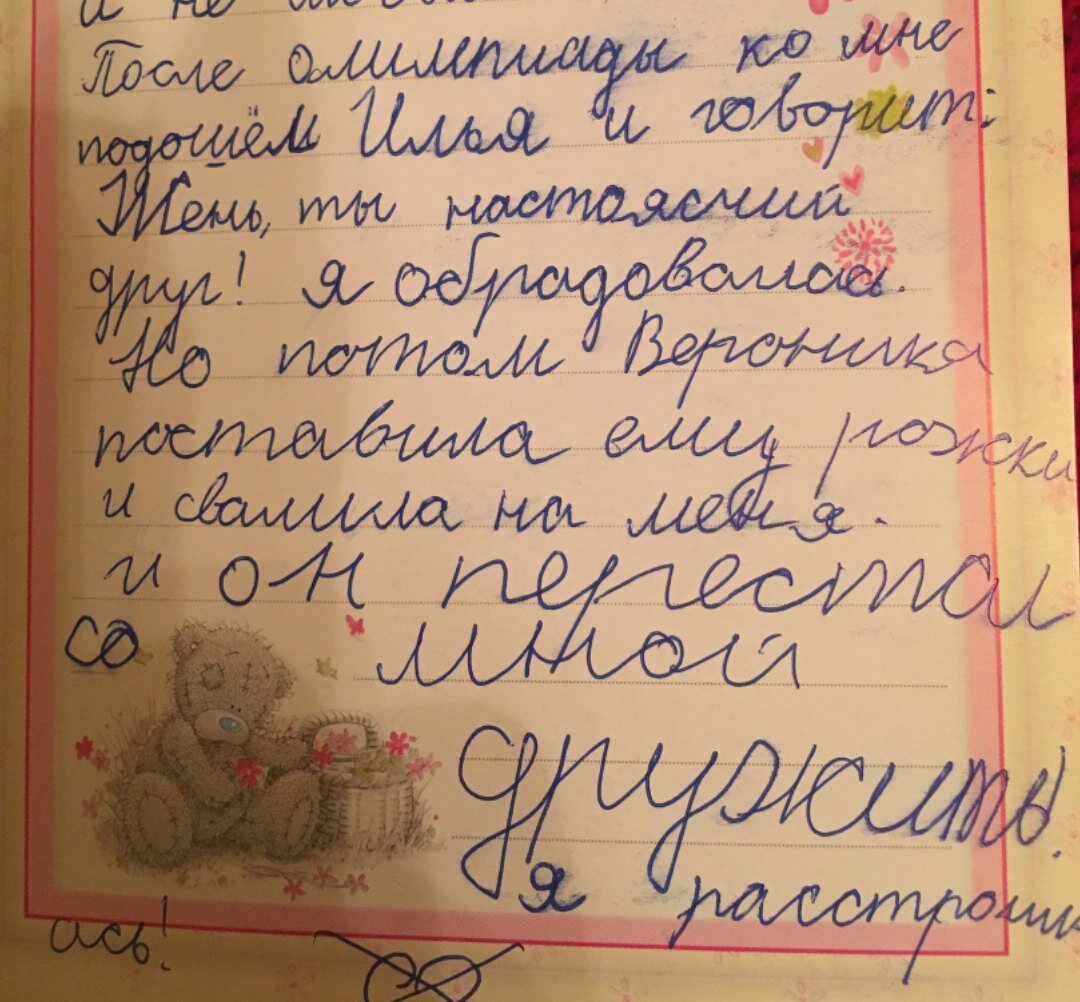 и не
После олимпиады ко мне
подошёл Илья и говорит:
Жень, ты настоясчий
друг! я обрадовалась.
Но потом Вероника
поставила ему рожки
и свалила на меня.
и он перестал
со мной
дружить!
я расстроил
ась!